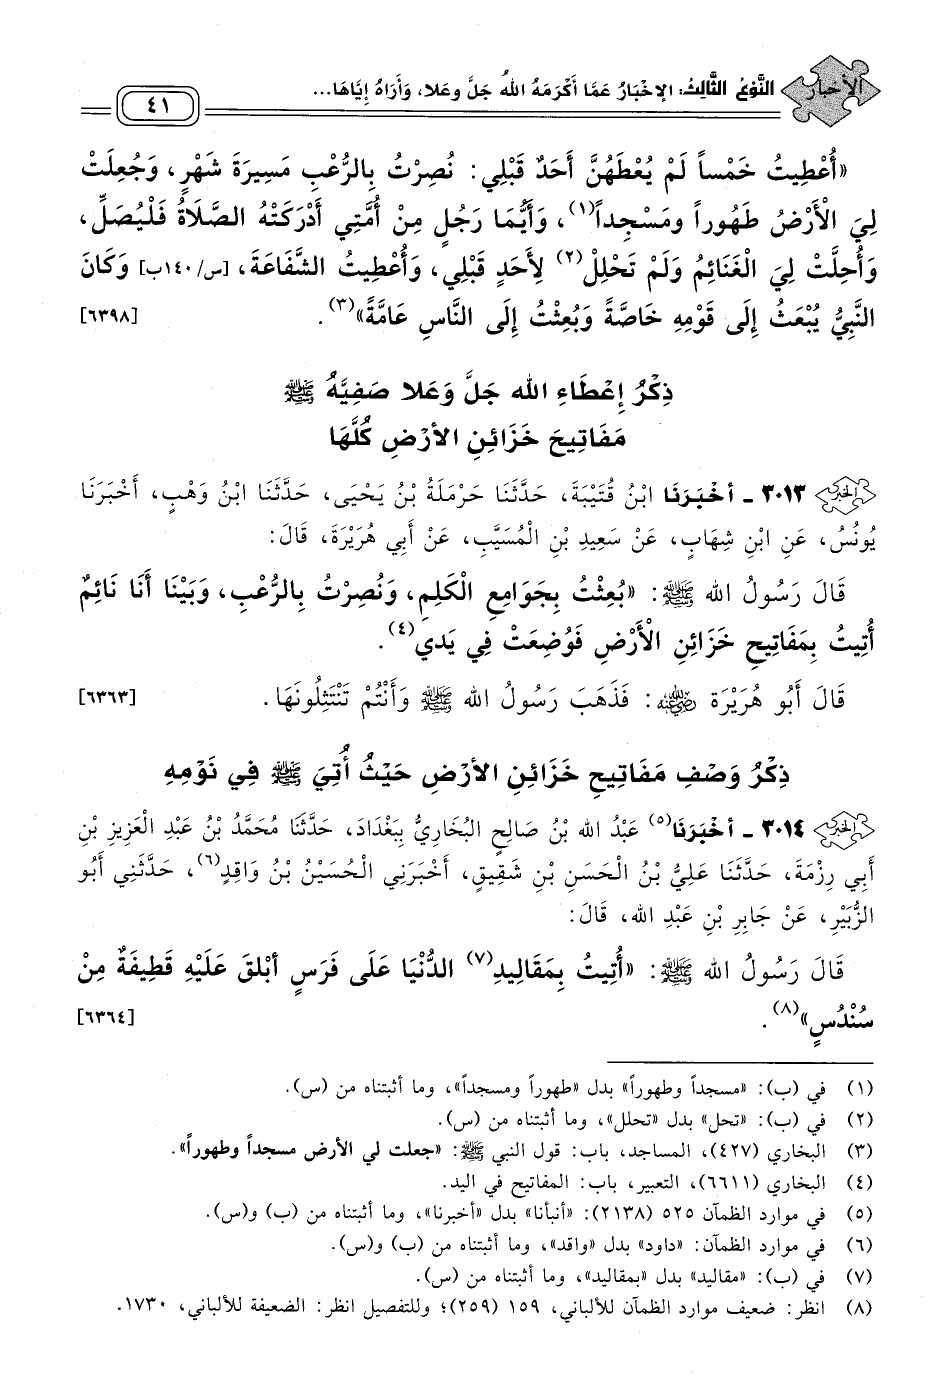 الأخبار
النَّوْعُ الثَّالِثُ: الإخْبَارُ عَمَّا أكْرَمَهُ اللهُ جَلَّ وعَلا، وَأَرَاهُ إيَّاهَا...
٤١
«أُعْطِيتُ خَمْساً لَمْ يُعْطَهُنَّ أَحَدٌ قَبْلِي: نُصِرْتُ بِالرُّعْبِ مَسِيرَةَ شَهْرٍ، وَجُعِلَتْ
لِيَ الْأَرْضُ طَهُوراً ومَسْجِداً(١)، وَأَيُّمَا رَجُلٍ مِنْ أُمَّتِي أَدْرَكَتْهُ الصَّلَاةُ فَلْيُصَلِّ،
وَأُحِلَّتْ لِيَ الْغَنَائِمُ وَلَمْ تَحْلِلْ(٢) لِأَحَدٍ قَبْلِي، وَأُعْطِيتُ الشَّفَاعَةَ، [س/١٤٠ب] وَكَانَ
النَّبِيُّ يُبْعَثُ إِلَى قَوْمِهِ خَاصَّةً وَبُعِثْتُ إِلَى النَّاسِ عَامَّةً»(٣). [٦٣٩٨]
ذِكْرُ إعْطَاءِ الله جَلَّ وَعَلا صَفِيَّهُ ﷺ
مَفَاتِيحَ خَزَائِنِ الأرْضِ كُلَّهَا
الخبر ٣٠١٣ - أخْبَرَنَا ابْنُ قُتَيْبَةَ، حَدَّثَنَا حَرْمَلَةُ بْنُ يَحْيَى، حَدَّثَنَا ابْنُ وَهْبٍ، أَخْبَرَنَا
يُونُسُ، عَنِ ابْنِ شِهَابٍ، عَنْ سَعِيدِ بْنِ الْمُسَيَّبِ، عَنْ أَبِي هُرَيْرَةَ، قَالَ:
قَالَ رَسُولُ الله ﷺ: «بُعِثْتُ بِجَوَامِعِ الْكَلِمِ، وَنُصِرْتُ بِالرُّعْبِ، وَبَيْنَا أَنَا نَائِمٌ
أُتِيتُ بِمَفَاتِيحِ خَزَائِنِ الْأَرْضِ فَوُضِعَتْ فِي يَدي(٤).
قَالَ أَبُو هُرَيْرَة رضي الله عنه: فَذَهَبَ رَسُولُ الله ﷺ وَأَنْتُمْ تَنْتَثِلُونَهَا. [٦٣٦٣]
ذِكْرُ وَصْفِ مَفَاتِيحِ خَزَائِنِ الأرْضِ حَيْثُ أُتِيَ ﷺ فِي نَوْمِهِ
الخبر ٣٠١٤ - أخْبَرَنَا(٥) عَبْدُ الله بْنُ صَالِحٍ البُخَارِيُّ بِبَغْدَادَ، حَدَّثَنَا مُحَمَّدُ بْنُ عَبْدِ الْعَزِيزِ بْنِ
أَبِي رِزْمَةَ، حَدَّثَنَا عَلِيُّ بْنُ الْحَسَنِ بْنِ شَقِيقٍ، أَخْبَرَنِي الْحُسَيْنُ بْنُ وَاقِدٍ(٦)، حَدَّثَنِي أَبُو
الزُّبَيْرِ، عَنْ جَابِرِ بْنِ عَبْدِ الله، قَالَ:
قَالَ رَسُولُ الله ﷺ: «أُتِيتُ بِمَقَالِيدِ(٧) الدُّنْيَا عَلَى فَرَسٍ أبْلقَ عَلَيْهِ قَطِيفَةٌ مِنْ
سُنْدُسٍ»(٨). [٦٣٦٤]
(١) في (ب): «مسجداً وطهوراً» بدل «طهوراً ومسجداً»، وما أثبتناه من (س).
(٢) في (ب): «تحل» بدل «تحلل»، وما أثبتناه من (س).
(٣) البخاري (٤٢٧)، المساجد، باب: قول النبي ﷺ: «جعلت لي الأرض مسجداً وطهوراً».
(٤) البخاري (٦٦١١)، التعبير، باب: المفاتيح في اليد.
(٥) في موارد الظمآن ٥٢٥ (٢١٣٨): «أنبأنا» بدل «أخبرنا»، وما أثبتناه من (ب) و(س).
(٦) في موارد الظمآن: «داود» بدل «واقد»، وما أثبتناه من (ب) و(س).
(٧) في (ب): «مقاليد» بدل «بمقاليد»، وما أثبتناه من (س).
(٨) انظر: ضعيف موارد الظمآن للألباني، ١٥٩ (٢٥٩)؛ وللتفصيل انظر: الضعيفة للألباني، ١٧٣٠.